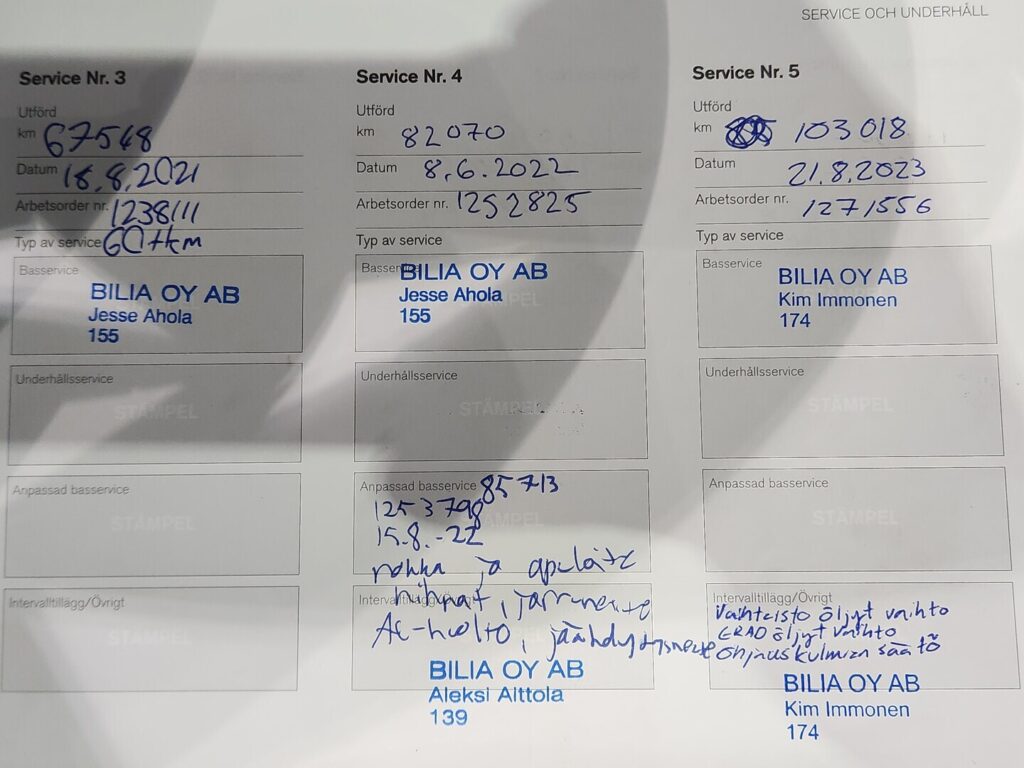 SERVICE OCH UNDERHÅLL
Service Nr. 3
Utförd
km 67548
Datum 18.8.2021
Arbetsorder nr. 1238111
Typ av service 60tkm
Basservice
BILIA OY AB
Jesse Ahola
155
Underhållsservice
STÄMPEL
Anpassad basservice
STÄMPEL
Intervalltillägg/Övrigt
STÄMPEL
Service Nr. 4
Utförd
km 82070
Datum 8.6.2022
Arbetsorder nr. 1252825
Typ av service
Basservice
BILIA OY AB
Jesse Ahola
155
Underhållsservice
STÄMPEL
Anpassad basservice 85713
1253798
15.8.-22
ja apulaite
Intervalltillägg/Övrigt
hihnat, jarruneste
AC-huolto, jäähdytysneste
BILIA OY AB
Aleksi Aittola
139
Service Nr. 5
Utförd
km 103018
Datum 21.8.2023
Arbetsorder nr. 1271556
Typ av service
Basservice
BILIA OY AB
Kim Immonen
174
Underhållsservice
STÄMPEL
Anpassad basservice
STÄMPEL
Intervalltillägg/Övrigt
Vaihteisto öljyt vaihto
ERAD öljyt vaihto
Ohjauskulmien säätö
BILIA OY AB
Kim Immonen
174